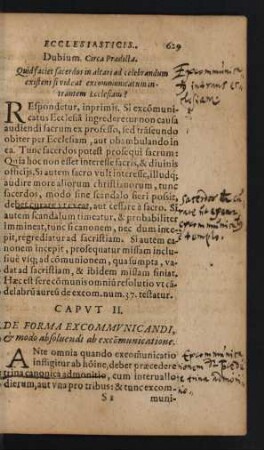 ECCLESIASTICIS. 629
Dubium. Circa Prædicta.
Quid faciet sacerdos in altari ad celebrandum
existens si videat excommunicatum in-
trantem Ecclesiam?
REspondetur, inprimis. Si excõmuni-
catus Ecclesiã ingrederetur non causa
audiendi sacrum ex professo, sed trãseundo
obiter per Ecclesiam, aut obambulando in
ea. Tunc sacerdos potest prosequi sacrum:
Quia hoc non esset interesse sacris, & diuinis
officijs. Si autem sacro vult interesse, illudq;
audire more aliorum christianorum, tunc
sacerdos, modo sine scandalo fieri possit,
debet curare vt exeat, aut cessare à sacro. Si
autem scandalum timeatur, & probabiliter
immineat, tunc si canonem, nec dum incœ-
pit, regrediatur ad sacristiam. Si autem ca-
nonem incepit, prosequatur missam inclu-
siuè vsq; ad cõmunionem, qua sumpta, va-
dat ad sacristiam, & ibidem missam finiat.
Hæc est fere cõmunis omniũ resolutio vt cã-
delabrũ aureũ de excom. num. 37. testatur.
CAPVT II.
DE FORMA EXCOMMVNICANDI,
& modo absoluendi ab excõmunicatione.
ANte omnia quando excomũicatio
infligitur ab hõine, debet præcedere
trina canonica admonitio, cum interuallo
dierum, aut vna pro tribus: & tunc excom-
S s muni-